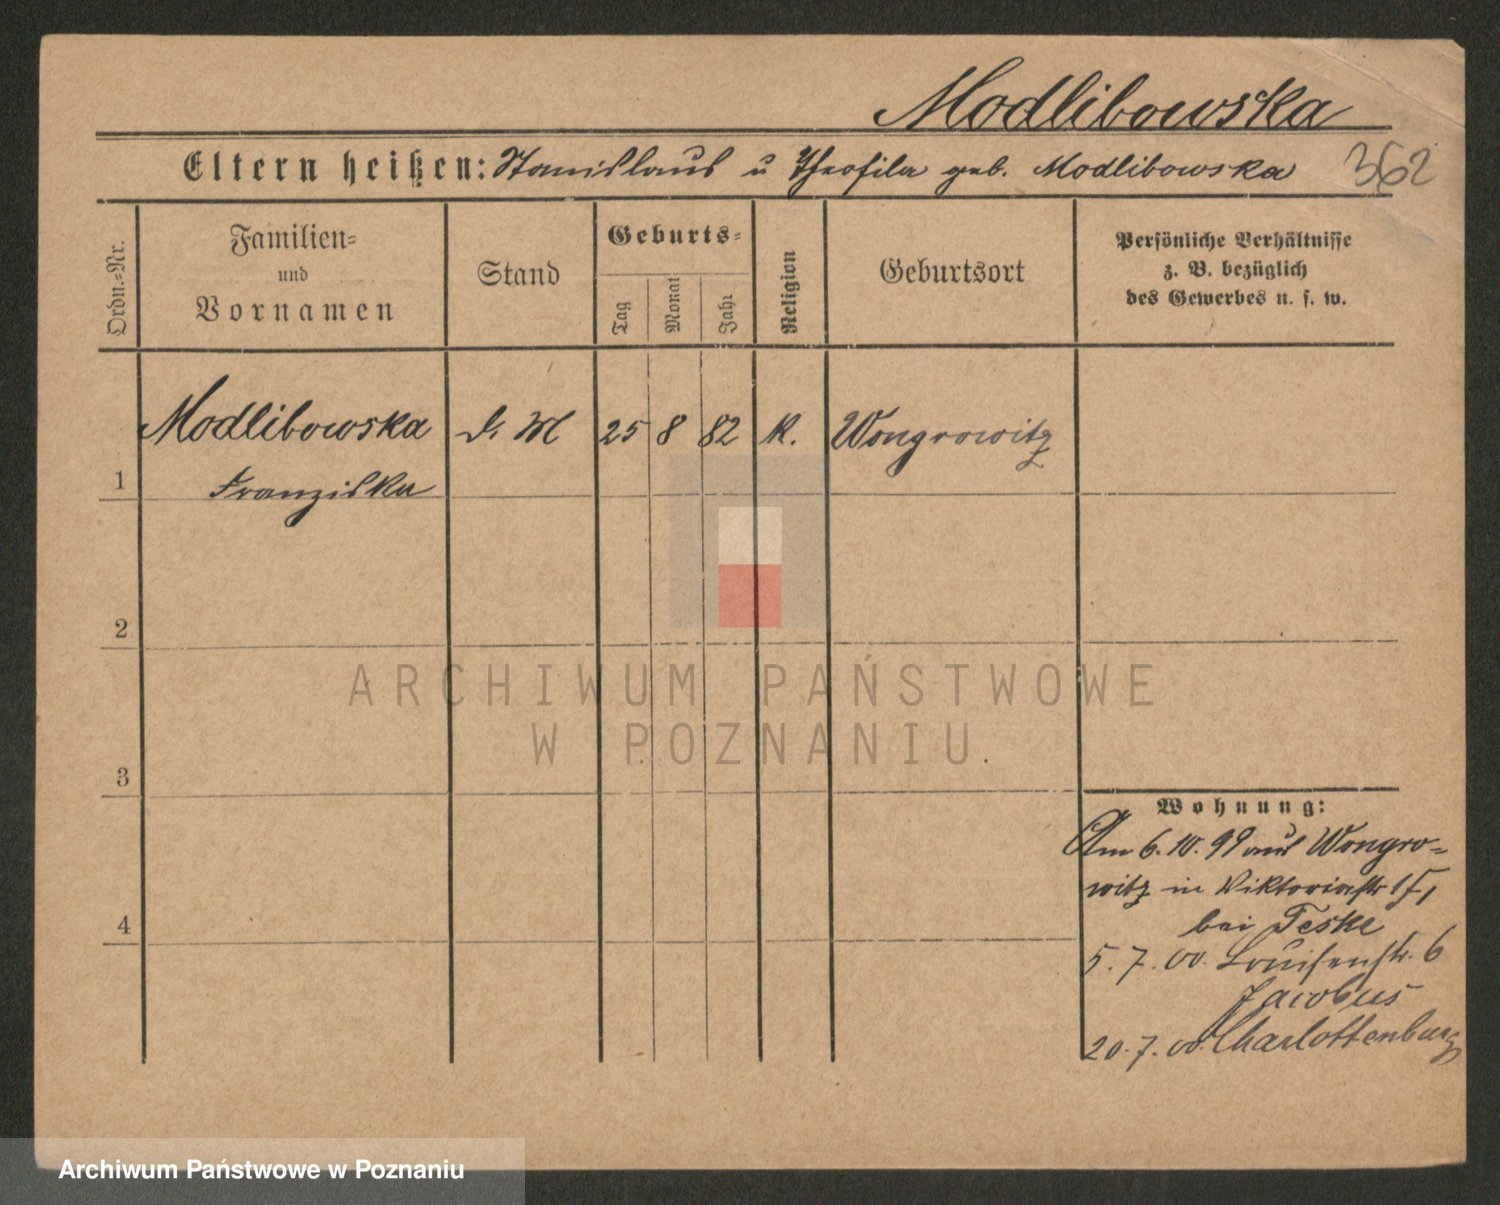 Modlibowska
Eltern heißen: Stanislaus u Theofila geb. Modlibowska
362
Ordn.=Nr.
Familien=
und
Vornamen
Stand
Geburts=
Tag
Monat
Jahr
Religion
Geburtsort
Persönliche Verhältnisse
z. B. bezüglich
des Gewerbes u. s. w.
Modlibowska D. M 25 8 82 K. Wongrowitz
1 Franziska
2
3
4
ARCHIWUM PAŃSTWOWE
W POZNANIU.
Wohnung:
Am 6.10.99 aus Wongro=
witz in Viktoriastr
bei Teske
5.7.00. Louisenstr. 6
Jacobus
20.7.00. Charlottenburg
Archiwum Państwowe w Poznaniu